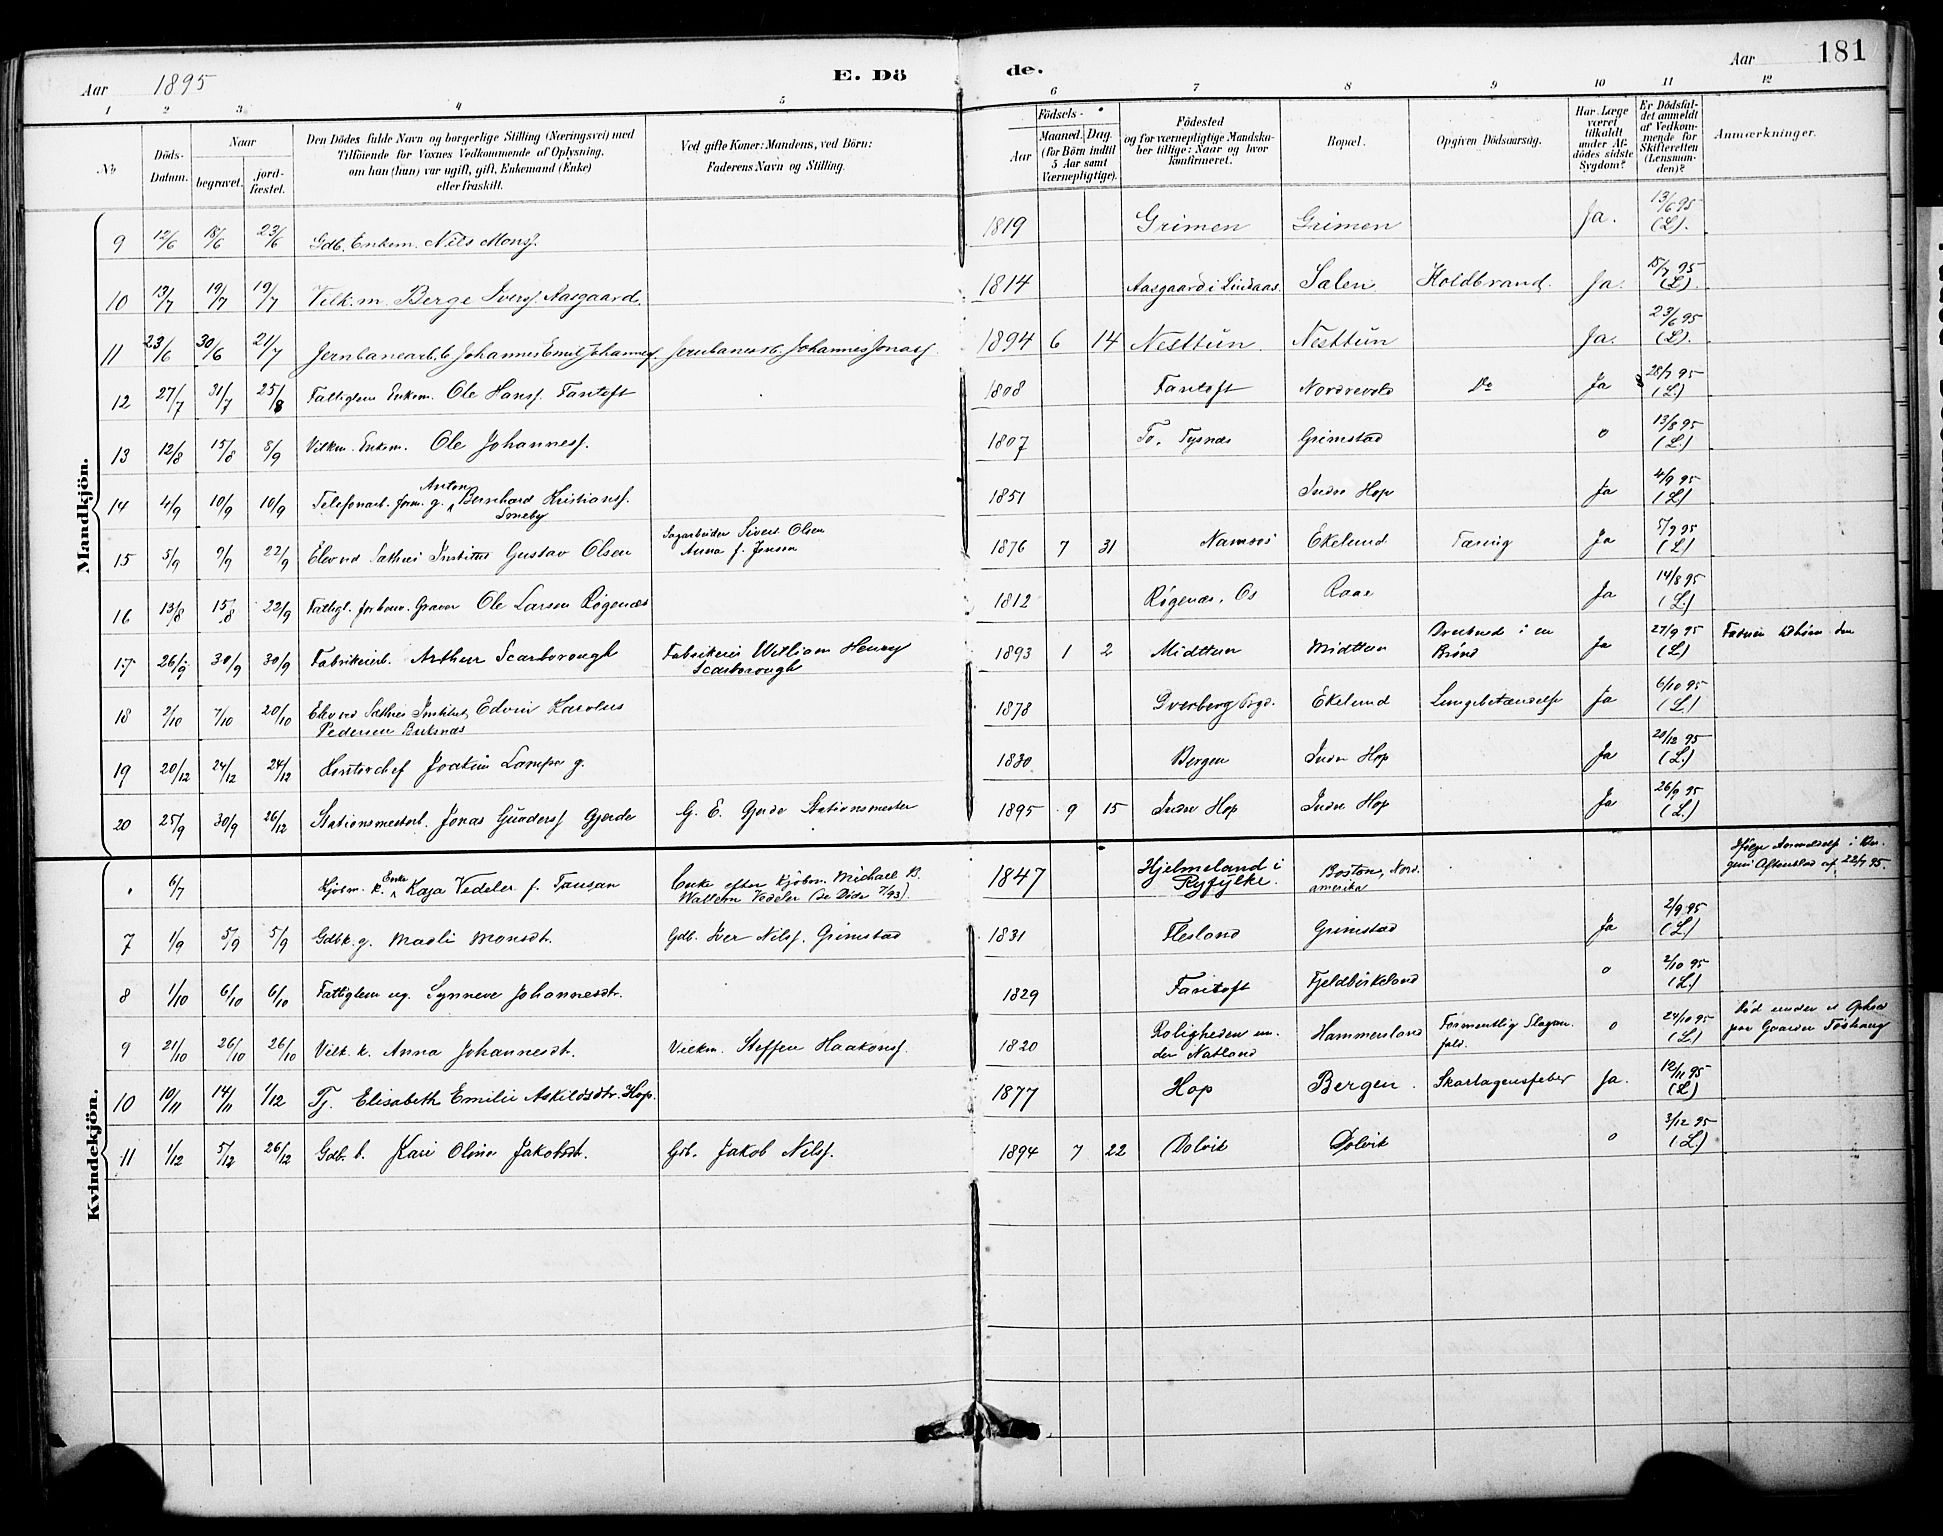 Aar 1895 E. Dö de. Aar 181
1 2 3 4 5 6 7 8 9 10 11 12
No
Döds-Datum.
Naar
begravet.
jord-fæstet.
Den Dödes fulde Navn og borgerlige Stilling (Næringsvei) med
Tilföiende for Voxnes Vedkommende af Oplysning,
om han (hun) var ugift, gift, Enkemand (Enke)
eller fraskilt.
Ved gifte Koner: Mandens, ved Börn:
Faderens Navn og Stilling.
Födsels-
Aar
Maaned. Dag.
(for Börn indtil
5 Aar samt
Værnepligtige).
Födested
og for værnepligtige Mandska-
ber tillige: Naar og hvor
konfirmeret.
Bopæl.
Opgiven Dödsaarsag.
Har Læge
været
tilkaldt
under Af-
dödes sidste
Sygdom?
Er Dödsfal-
det anmeldt
af Vedkom-
mende for
Skifteretten
(Lensman-
den)?
Anmærkninger.
Mandkjön.
9 12/6 18/6 23/6 Gdb. Enkem. Nils Monss. 1819 Grimen Grimen Ja. 13/6 95 (L).
10 13/7 19/7 19/7 Vilk.m. Berge Iverss. Aasgaard. 1814 Aasgaard i Lindaas. Salen Koldbrand. Ja. 15/7 95 (L).
11 23/6 30/6 21/7 Jernbanearb. b. Johannes Emil Johanness. Jernbanearb. Johannes Jonass. 1894 6 14 Nesttun Nesttun Ja. 23/6 95 (L).
12 27/7 31/7 25/8 Fattiglem Enkem. Ole Hanss. Fantoft 1808 Fantoft Nordrevold Do Ja 28/7 95 (L.)
13 12/8 15/8 8/9 Vilkm. Enkem. Ole Johanness. 1807 Tysnæs Grimstad o 13/8 95 (L.)
14 4/9 10/9 10/9 Telefonarb. form. g. Anton Bernhard Kristianss.
Sneby 1851 Indre Hop Ja 4/9 95 (L)
15 5/9 9/9 22/9 Elev ved Sæthres Institut Gustav Olsen Sagarbeider Sivert Olsen
Anna f. Jensen 1876 7 31 Namsos Ekelund Tæring Ja 5/9 95 (L)
16 13/8 15/8 22/9 Fattigl. forhenv. Graver Ole Larsen Røgenæs 1812 Røgenæs, Os Raae Ja 14/8 95 (L.)
17 26/9 30/9 30/9 Fabrikeierb. Arthur Scarborough Fabrikeier William Henry
Scarborough 1893 1 2 Midttun Midttun Druknet i en
Brønd Ja 27/9 95 (L)
18 2/10 7/10 20/10 Elev ved Sæthres Institut, Edvin Karolus
Pedersen 1878 Dverberg Ekelund Lungebetændelse Ja 6/10 95 (L)
19 20/12 24/12 24/12 Kontorchef Joakim Lampe g. 1830 Bergen Indre Hop Ja 20/12 95 (L.)
20 25/9 30/9 26/12 Stationsmesterb. Jonas Gunderss Gjerde G. E. Gjerde Stationsmester 1895 9 15 Indre Hop Indre Hop Ja 26/9 95 (L)
Kvindekjön.
6/7 Kjöbm. k. Enke Kaja Vedeler f. Tausan Enke efter Kjöbm. Michael B.
Wallem Vedeler (de Døde 7/93). 1847 Hjelmeland i
Ryfylke. Boston, Nord-
amerika ifølge Anmeldelse i Ber-
gens Aftenblad af 22/7 95.
7 1/9 5/9 5/9 Gdbk. g. Madli Monsdt. Gdb. Iver Nilss. Grimstad 1831 Flesland Grimstad Ja 2/9 95 (L)
8 1/10 6/10 6/10 Fattiglem ug. Synneve Johannesdt. 1829 Fantoft Fjeldbirkeland o 2/10 95 (L.)
9 21/10 26/10 26/10 Vilk. k. Anna Johannesdt. Vilkm. Steffen Haakonss. 1820 Roligheden un-
der Natland Hammersland Formentlig Slagan-
fald. o 24/10 95 (L) død under et Ophold
paa Gaarden
10 10/11 14/11 1/12 Tj. Elisabeth Emilie Askildsdtr. Hop. 1877 Hop Bergen. Skarlagensfeber Ja. 12/11 95 (L)
11 1/12 5/12 26/12 Gdb. b. Kari Olina Jakobsdt. Gdb. Jakob Nilss. 1894 7 22 Dolvik Dolvik o 3/12 95 (L.)